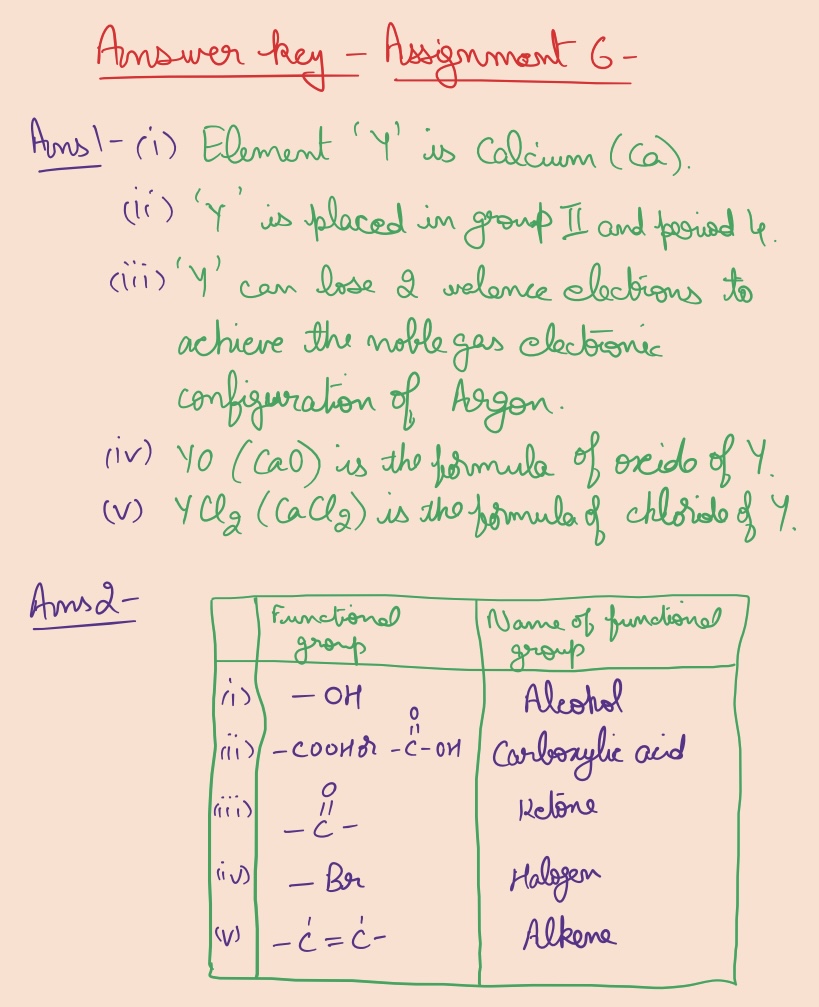 Answer key - Assignment 6-
Ans1- (i) Element 'Y' is Calcium (Ca).
(ii) 'Y' is placed in group II and period 4.
(iii) 'Y' can lose 2 valence electrons to
achieve the noble gas electronic
configuration of Argon.
(iv) YO (CaO) is the formula of oxide of Y.
(v) YCl₂ (CaCl₂) is the formula of chloride of Y.
Ans2-
Functional group | Name of functional group
(i) -OH | Alcohol
(ii) -COOH or -C(=O)-OH | Carboxylic acid
(iii) -C(=O)- | Ketone
(iv) -Br | Halogen
(v) -C=C- | Alkene